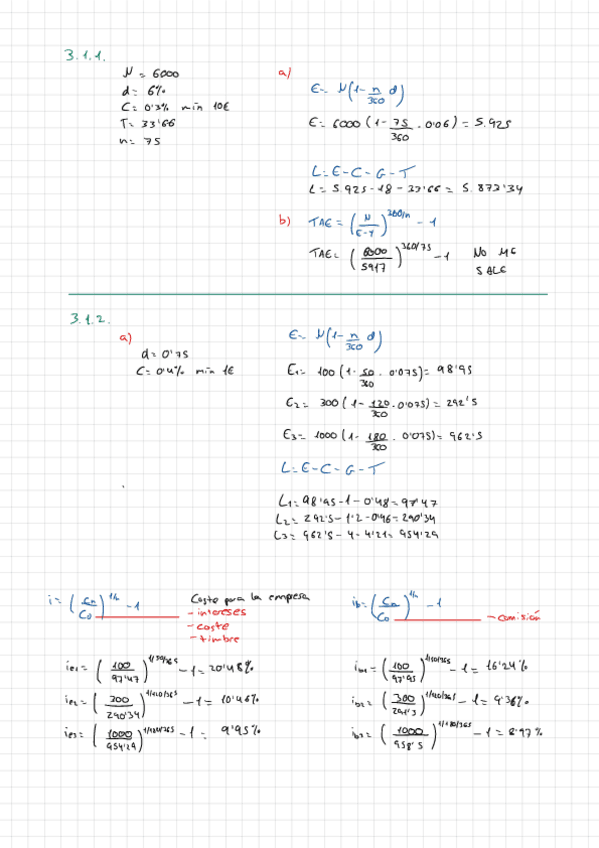 3.1.1.
N = 6000
d = 6%
C = 0'3% min 10€
T = 33'66
n = 75
a)
E = N(1 - n/360 d)
E = 6000 (1 - 75/360 · 0'06) = 5.925
L = E - C - G - T
L = 5.925 - 18 - 33'66 = 5.873'34
b)
TAE = (N/E-Y)^360/n - 1
TAE = (6000/5917)^360/75 - 1 NO ME
SALE
3.1.2.
a)
d = 0'75
C = 0'4% min 1€
E = N(1 - n/360 d)
E1 = 100 (1 - 50/360 · 0'075) = 98'95
E2 = 300 (1 - 120/360 · 0'075) = 292'5
E3 = 1000 (1 - 180/360 · 0'075) = 962'5
L = E - C - G - T
L1 = 98'95 - 1 - 0'48 = 97'47
L2 = 292'5 - 1'2 - 0'96 = 290'34
L3 = 962'5 - 4 - 4'21 = 954'29
i = (Cn/Co)^1/n - 1
Coste para la empresa
- intereses
- coste
- timbre
ie1 = (100/97'47)^1/50/365 - 1 = 20'48%
ie2 = (300/290'34)^1/120/365 - 1 = 10'46%
ie3 = (1000/954'29)^1/180/365 - 1 = 9'95%
ib = (Cn/Co)^1/n - 1
- comisión
ib1 = (100/97'95)^1/50/365 - 1 = 16'24%
ib2 = (300/291'3)^1/120/365 - 1 = 9'36%
ib3 = (1000/958'5)^1/180/365 - 1 = 8'97%